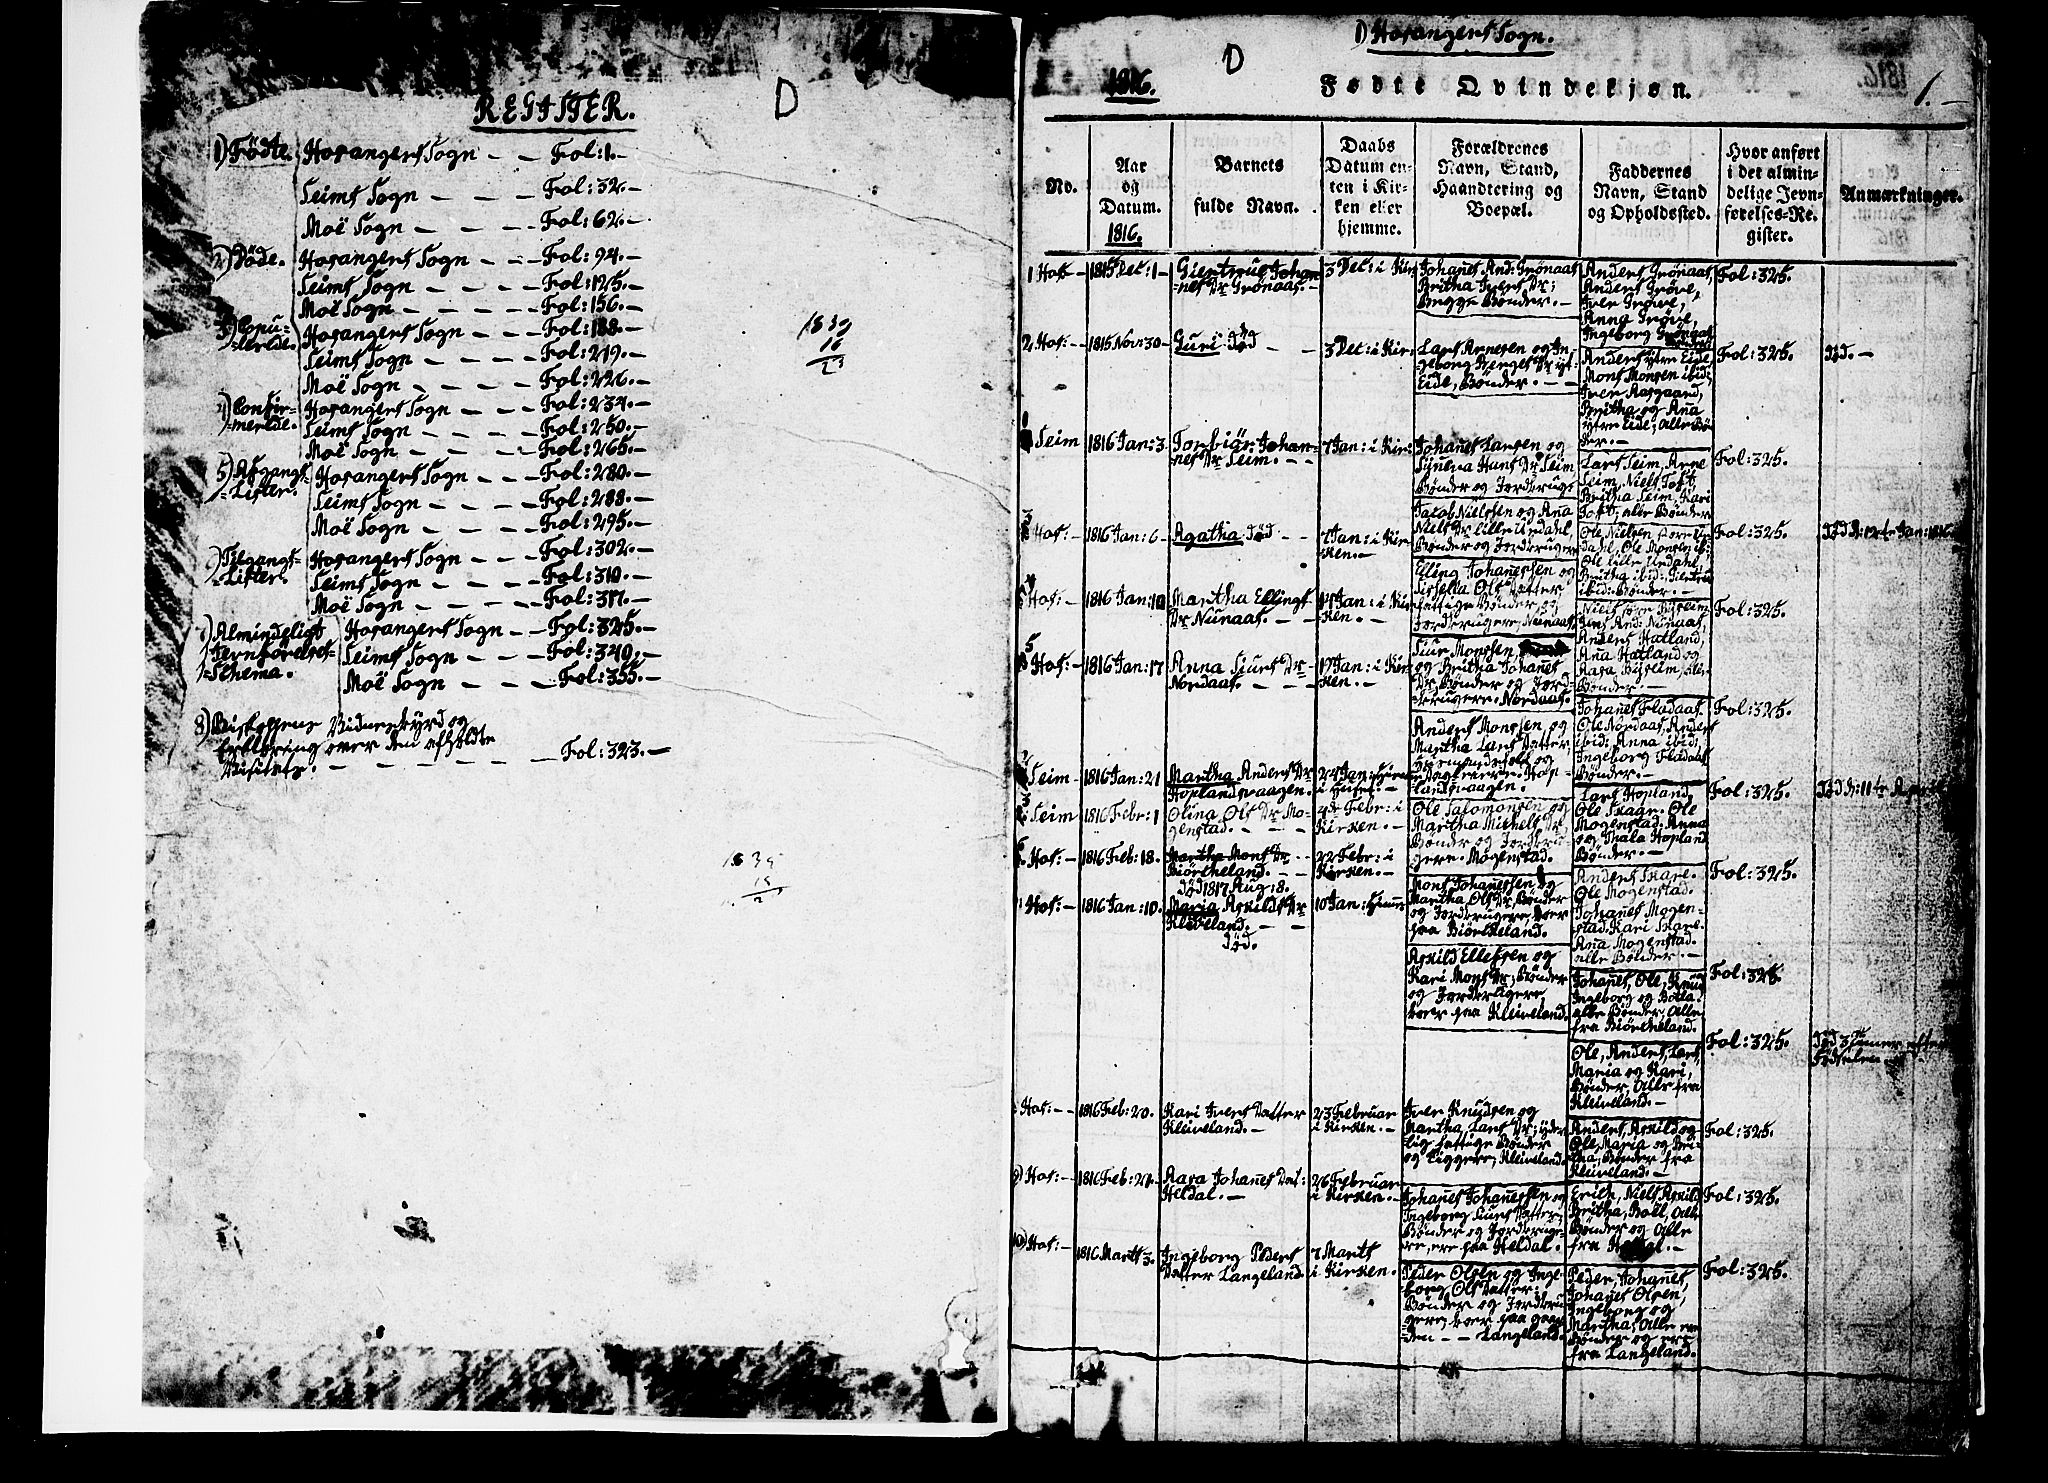 D
REGISTER.
1) Födte. Hosangers Sogn — — Fol: 1.—
Seims Sogn — — — Fol: 32.—
Moë Sogn — — — Fol: 62.—
2) Døde. Hosangers Sogn — — Fol: 94.—
Seims Sogn — — — Fol: 125.—
Moë Sogn — — — Fol: 156.—
3) Copu-
-lerede. Hosangers Sogn — — Fol: 188.—
Seims Sogn — — — Fol: 219.—
Moë Sogn — — — Fol: 226.—
4) Confir-
-merede. Hosangers Sogn — — Fol: 234.—
Seims Sogn — — — Fol: 250.—
Moë Sogn — — — Fol: 265.—
5) Afgangs-
-Lister. Hosangers Sogn — — Fol: 280.—
Seims Sogn — — — Fol: 288.—
Moë Sogn — — — Fol: 295.—
Tilgangs-
-Lister. Hosangers Sogn — — Fol: 302.—
Seims Sogn — — — Fol: 310.—
Moë Sogn — — — Fol: 317.—
7) Almindeligt
Jevnførelses-
-Schema. Hosangers Sogn — — Fol: 325.—
Seims Sogn — — — Fol: 340.—
Moë Sogn — — — Fol: 355.—
8) Biskoppens Vidnesbyrd og
Erklæring over den afholdte
Visitats. — — — — — Fol: 323.—
1839
16
23
1) Hosangers Sogn.
D
1816.
Fødte Qvindekjøn.
1.—
No.
Aar
og
Datum.
1816.
Barnets
fulde Navn.
Daabs
Datum en-
ten i Kir-
ken eller
hjemme.
Forældrenes
Navn, Stand,
Haandtering og
Boepæl.
Faddernes
Navn, Stand
og Opholdssted.
Hvor anført
i det almin-
delige Jevn-
førelses-Re-
gister.
Anmærkninger.
1 Hos:— 1815 Dec: 1— Giertrue Johan-
-nes Dr Grønaas.—
3 Dec: i Kir:
Johanes And: Grønaas
Britha Ivers Dr;
Begge Bønder.—
Anders Grønaas,
Anders Grøve,
Iver Grøve,
Anna Grøve,
Ingeborg Grønaas
Fol: 325.
2. Hos:— 1815 Nov: 30— Guri død — —
3 Dec: i Kir:
Lars Arnesen og In-
-geborg Berges Dr yt-
Eide, Bønder.— —
Anders ytre Eide
Mons Monsen ibid;
Iver Aasgaard,
Britha og Ana
ytre Eide; alle Bøn-
der.—
Fol: 325.
Død.—
Seim 1816 Jan: 3. Torbiør: Johan-
nes Dr Seim.— —
7 Jan: i Kir:
Johanes Larsen og
Syneva Hans Dr Seim
Bønder og Jordbruge:
Lars Seim, Arne
Seim, Niels Toft,
Britha Seim, Kari
Toft; alle Bønder
Fol: 325.
3 Hos:— 1816 Jan: 6— Agatha død —
7 Jan: i Kir-
ken.—
Jacob Nielssen og Ana
Niels Dr lille Urdahl,
Bønder og Jordbruger
Ole Nielsen store Ur-
dahl, Ole Monsen ib:
Ole lille Urdahl,
Britha ibid: Giertrue
ibid: Bønder.—
Fol: 325.
Død d: 12te Jan: 1816.
4 Hos:— 1816 Jan: 10 Martha Ellings
Dr Nunaas.— —
14 Jan: i Kir-
ken.—
Elling Johanessen og
Sissella Ols Datter
fattige Bønder og
Jordbrugere, Nunaas,
Niels store Bysheim,
Jens And: Nunaas,
Anders Hatland;
Ana Hatland og
Aasa Bysheim, alle
Bønder.—
Fol: 325.
5 Hos:— 1816 Jan: 17 Anna Siurs Dr
Nordaas.— —
19 Jan: i Kir-
ken.—
Siur Monssen,
og Britha Johanes
Dr, Bønder og Jord-
-brugere. Nordaas.
Johanes Fladaas.
Ole Nordaas, Anders
ibid: Anna ibid;
Ingeborg Fladaas
Bønder.—
Fol: 325.
2 Seim— 1816 Jan: 21 Martha Anders Dr
Hoplandsvaagen.
24 Jan:
i Huset.—
Anders Monssen og
Martha Lars Datter
og
Dagleiere. Hop-
landsvaagen.
Lars Hopland,
Ole Skaar, Ole
Mogenstad. Anna
og Thala Hopland
Bønder.—
Fol: 325.
Død d: 11te April
3 Seim 1816 Febr: 1 Olina Ols Dr Mo-
genstad.— —
4de Febr: i
Kirken.—
Ole Salomonsen og
Martha Michels Dr
Bønder og Jordbru-
gere. Mogenstad.
Anders Skare.
Ole Mogenstad.
Johanes Mogen-
stad. Kari Skare.
Ana Mogenstad.
alle Bønder.—
Fol: 325.
6 Hos:— 1816 Feb: 18. Martha Mons Dr —
Biörkheland.—
død 1817 Aug: 8.
22 Febr: i
Kirken.—
Mons Johanessen og
Martha Ols Dr, Bønder
og Jordbrugere, boer
paa Biörkeland.
Johanes, Ole, Knud
Ingeborg og Botla.
alle Bønder, alle
fra Biörcheland.
Fol: 325.
Hos:— 1816 Jan: 10. Maria Askilds Dr
Kleiveland.— —
Død.
10 Jan: Hiem:
Askild Ellefsen og
Kari Mons Dr; Bønder
og Jordbrugere,
boer paa Kleiveland.
Ole, Anders, Lars,
Maria og Kari,
Bønder, alle fra
Kleiveland.—
Fol: 325.
Død 3 Timer efter
Fødselen
Hos:— — 1816 Feb: 20. Kari Ivers Datter
Kleiveland.—
23 Februar
i Kirken.—
Iver Knudsen og
Martha Lars Dr; yder-
lig fattige Bønder
og Liggere, Kleiveland.
Anders, Askild og
Ole, Maria og Bri-
tha, Bønder fra
Kleiveland.—
Fol: 325.
9) Hos:— 1816 Feb: 24. Aasa Johanes Dat:
Heldal.—
26 Februar
i Kirken.—
Johanes Johanessen og
Ingeborg Siurs Datter,
Bønder og Jordbruge-
re, ere paa Heldal.
Erich, Niels, Askild
Britha, Boel, Alle
Bønder og Alle
fra
Fol: 325.
10) Hos:— 1816 Marts 3. Ingeborg Peders
Datter Langeland.
7 Marts
i Kirken.—
Peder Olsen og Inge-
-borg Ols Datter:
Bønder og Jordbru-
gere; boer paa gaar-
den — — Langeland.
Peder, Johanes,
Johanes Olsen,
Ingeborg og
Martha, Alle ere
Bønder og ere
fra Langeland.
Fol: 325.